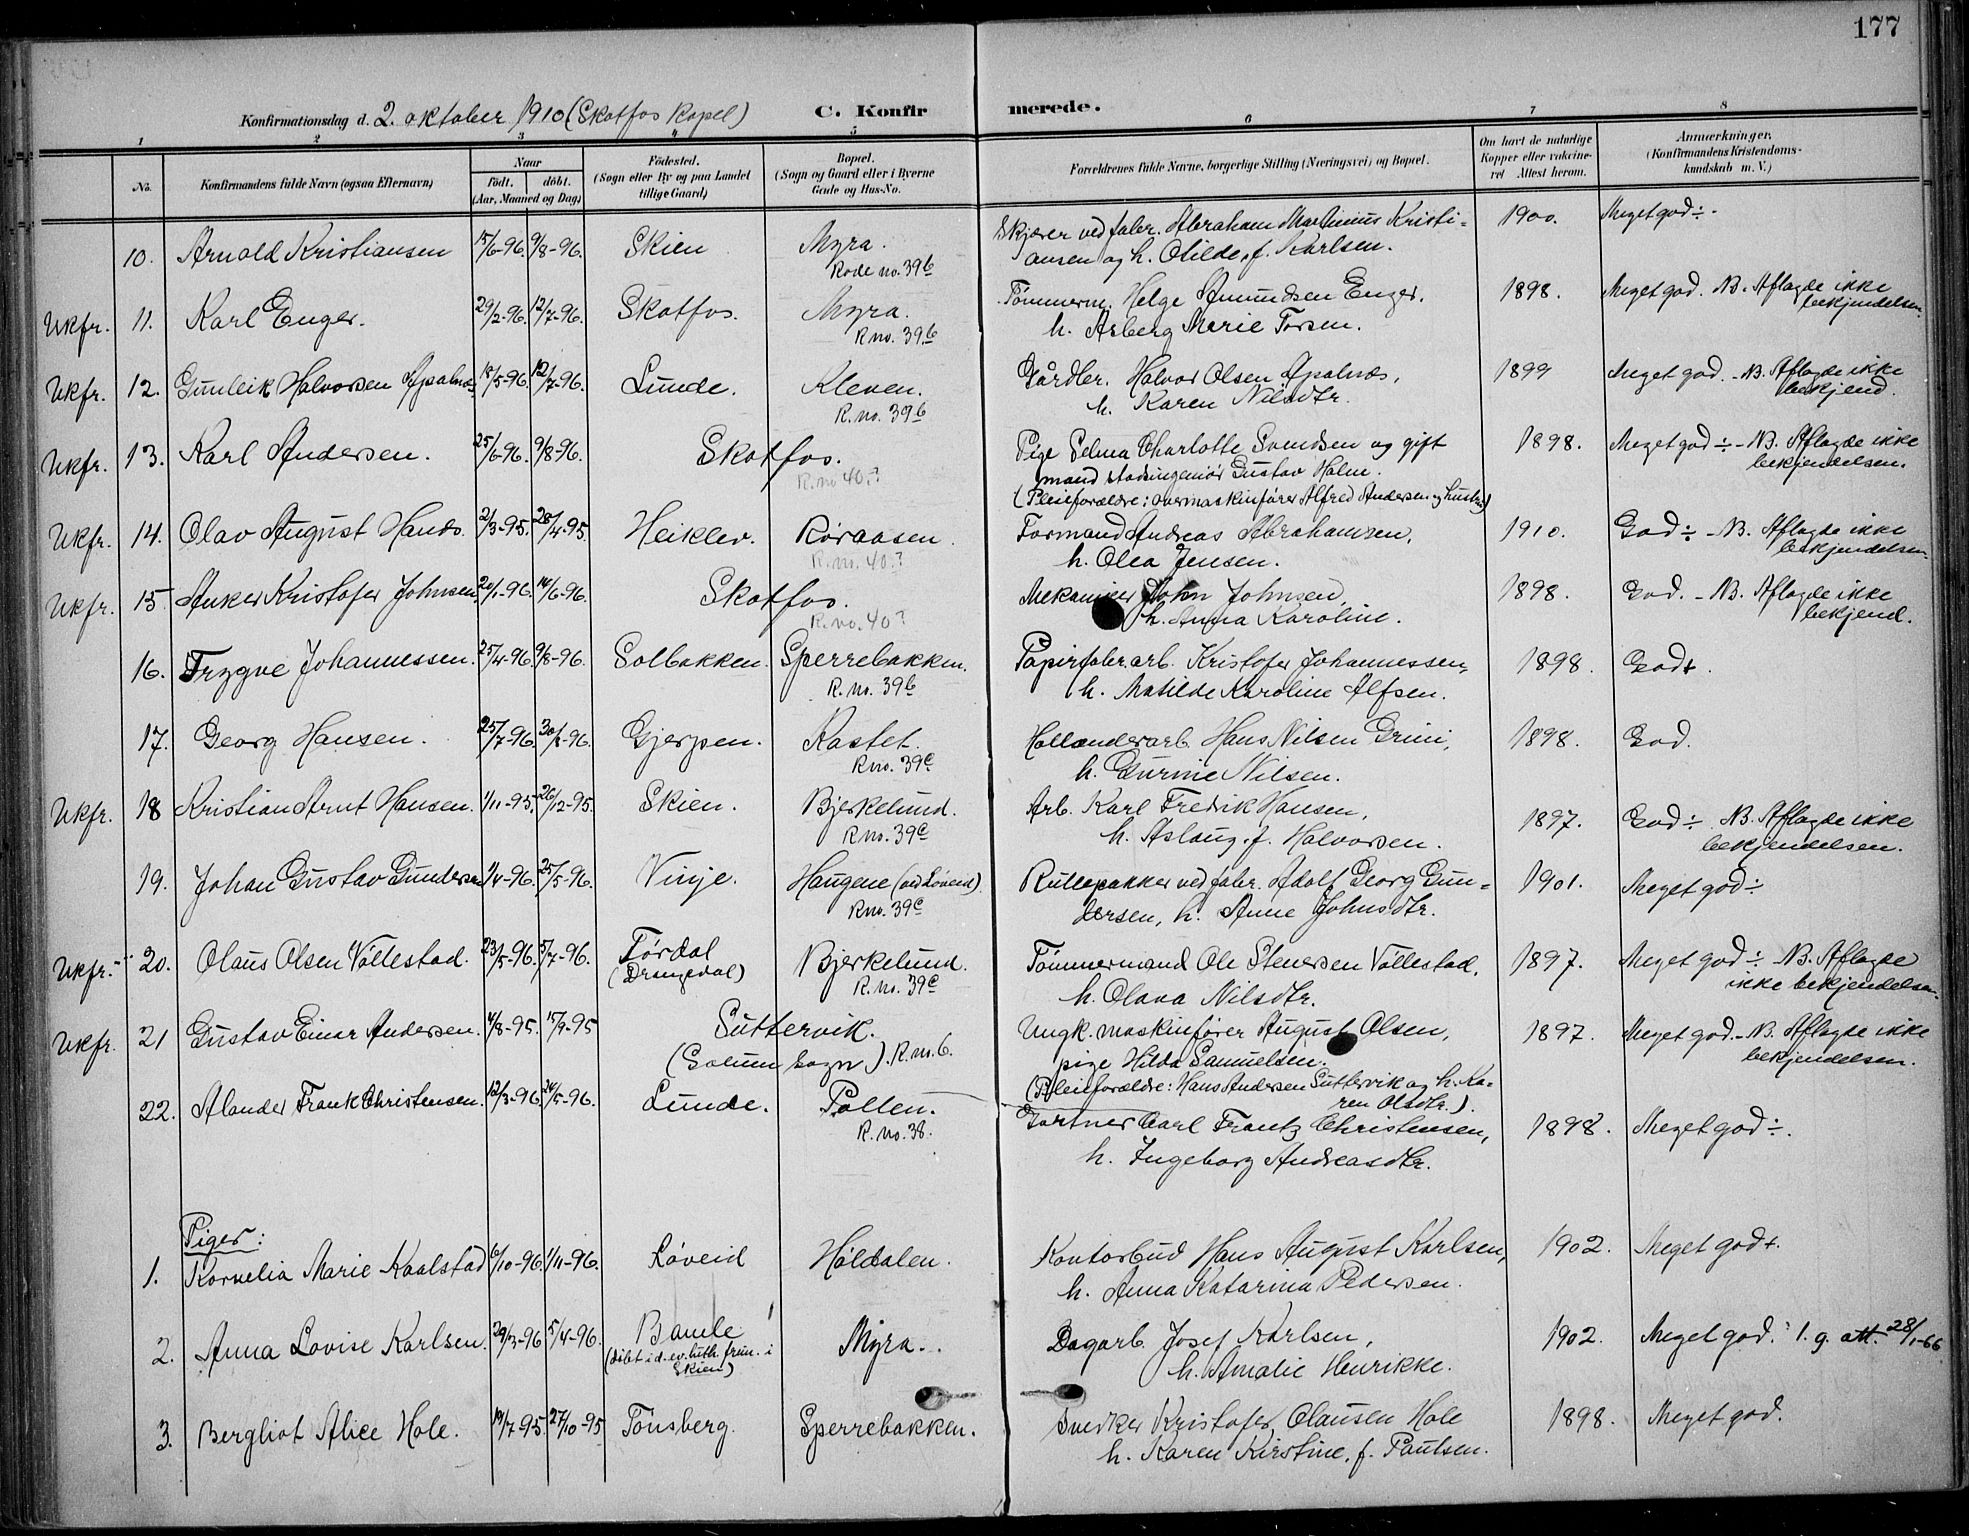 177
Konfirmationsdag d. 2. oktober 1910 (Skotfos Kapel) C. Konfirmerede.
1 2 3 4 5 6 7 8
No. Konfirmandens fulde Navn (ogsaa Efternavn) Naar født. døbt. (Aar, Maaned og Dag) Fødested. (Sogn eller By og paa Landet tillige Gaard) Bopæl. (Sogn og Gaard eller i Byerne Gade og Hus-No. Forældrenes fulde Navne, borgerlige Stilling (Næringsvei) og Bopæl. Om havt de naturlige Kopper eller vakcineret Attest herom. Anmærkninger. (Konfirmandens Kristendomskundskab m. V.)
10. Arnold Kristiansen 15/6-96. 9/8-96. Skien Myra. Skjærer ved fabr. Abraham Martinius Kristi- 1900. Meget god ÷.
Rode no. 39b ansen og h. Otilde, f. Karlsen.
Ukfr. 11. Karl Enger. 29/2-96. 12/7-96. Skotfos. Myra. Tømmerm. Helge Amundsen Enger, 1898. Meget god. NB. Aflagde ikke
R no. 39b h. Asberg Marie Torsen. bekjendelsen.
Ukfr. 12. Gunleik Halvorsen Apalnæs 18/5-96. 12/7-96. Lunde. Kleven. Gårdbr. Halvor Olsen Apalnæs, 1899 Meget god. - NB. Aflagde ikke
R. no. 39b h. Karen Nilsdtr. bekjend.
Ukfr. 13. Karl Andersen. 25/6-96. 9/8-96. Skotfos. Pige Selma Charlotte Svendsen og gift 1898. Meget god ÷ - NB. Aflagde ikke
R. no 40.? mand stadsingeniør Gustav Holm. bekjendelsen.
(Pleieforældre: overmaskinfører Alfred Andersen og hustru)
Ukfr. 14. Olav August Hans. 2/3-95. 28/4-95. Heiklev. Røraasen. Formand Andreas Abrahamsen, 1910. God ÷ - NB. Aflagde ikke
R. no. 40.? h. Olea Jensen. bekjendelsen.
Ukfr. 15. Anker Kristofer Johnsen. 20/1-96. 14/6-96. Skotfos. Mekaniker John Johnsen, 1898. God. - NB. Aflagde ikke
R. no. 40? h. Anna Karoline. bekjend.
16. Trygve Johannessen. 25/4-96. 9/8-96. Solbakken. Sperrebakken. Papirfabr.arb. Kristofer Johannessen, 1898. God +.
R. no. 39b h. Matilde Karoline Alfsen.
17. Georg Hansen. 25/7-96. 30/8-96. Gjerpen. Kastet. Hollænderarb. Hans Nilsen Grini, 1898. God.
R no. 39c h. Gurine Nilsen.
Ukfr. 18 Kristian Arnt Hansen. 1/11-95. 26/12-95. Skien. Bjerkelund. Arb. Karl Fredrik Hansen, 1897. God ÷ NB. Aflagde ikke
R no. 39c h. Aslaug, f. Halvorsen. bekjendelsen.
19. Johan Gustav Gundersen 1/4-96. 25/5-96. Vinje. Haugene (ved Løveid). Rullepakker ved fabr. Adolf Georg Gun- 1901. Meget god ÷
R no. 39c dersen, h. Anne Johnsdtr.
Ukfr. 20. Olaus Olsen Vøllestad. 23/5-96. 5/7-96. Tørdal Bjerkelund. Tømmermand Ole Stenersen Vøllestad, 1897. Meget god ÷ NB. Aflagde
(Drangedal) R. no. 39c h. Olava Nilsdtr. ikke bekjendelsen.
Ukfr. 21 Gustav Einar Andersen. 4/8-95. 15/9-95 Suttervik. Ungk. maskinfører August Olsen, 1897. Meget god. - NB. Aflagde ikke
(Solum Sogn) R. no. 6. pige Hilda Samuelsen. bekjendelsen.
(Pleieforældre: Hans Andersen Suttervik og h. Ka-
ren Olsdtr.)
22. Alander Frank Christensen. 12/3-96. 24/5-96. Lunde. Pollen. Gartner Carl Frantz Christensen, 1898. Meget god ÷.
R. no. 38. h. Ingeborg Andreasdtr.
Piger:
1. Kornelia Marie Kaalstad 6/10-96. 1/11-96. Løveid Høldalen. Kontorbud Hans August Karlsen, 1902. Meget god +.
h. Anna Katarina Pedersen.
2. Anna Lovise Karlsen. 29/3-96 5/4-96. Bamle Myra. Dagarb. Josef Karlsen, 1902. Meget god. l. g. att. 28/1-66
(døbt i d. ev. luth. frim. i Skien) h. Amalie Henrikke.
3. Bergliot Alice Hole. 19/7-95. 27/10-95 Tønsberg. Sperrebakken. Snedker Kristofer Olausen Hole 1898. Meget god.
h. Karen Kirstine, f. Paulsen.